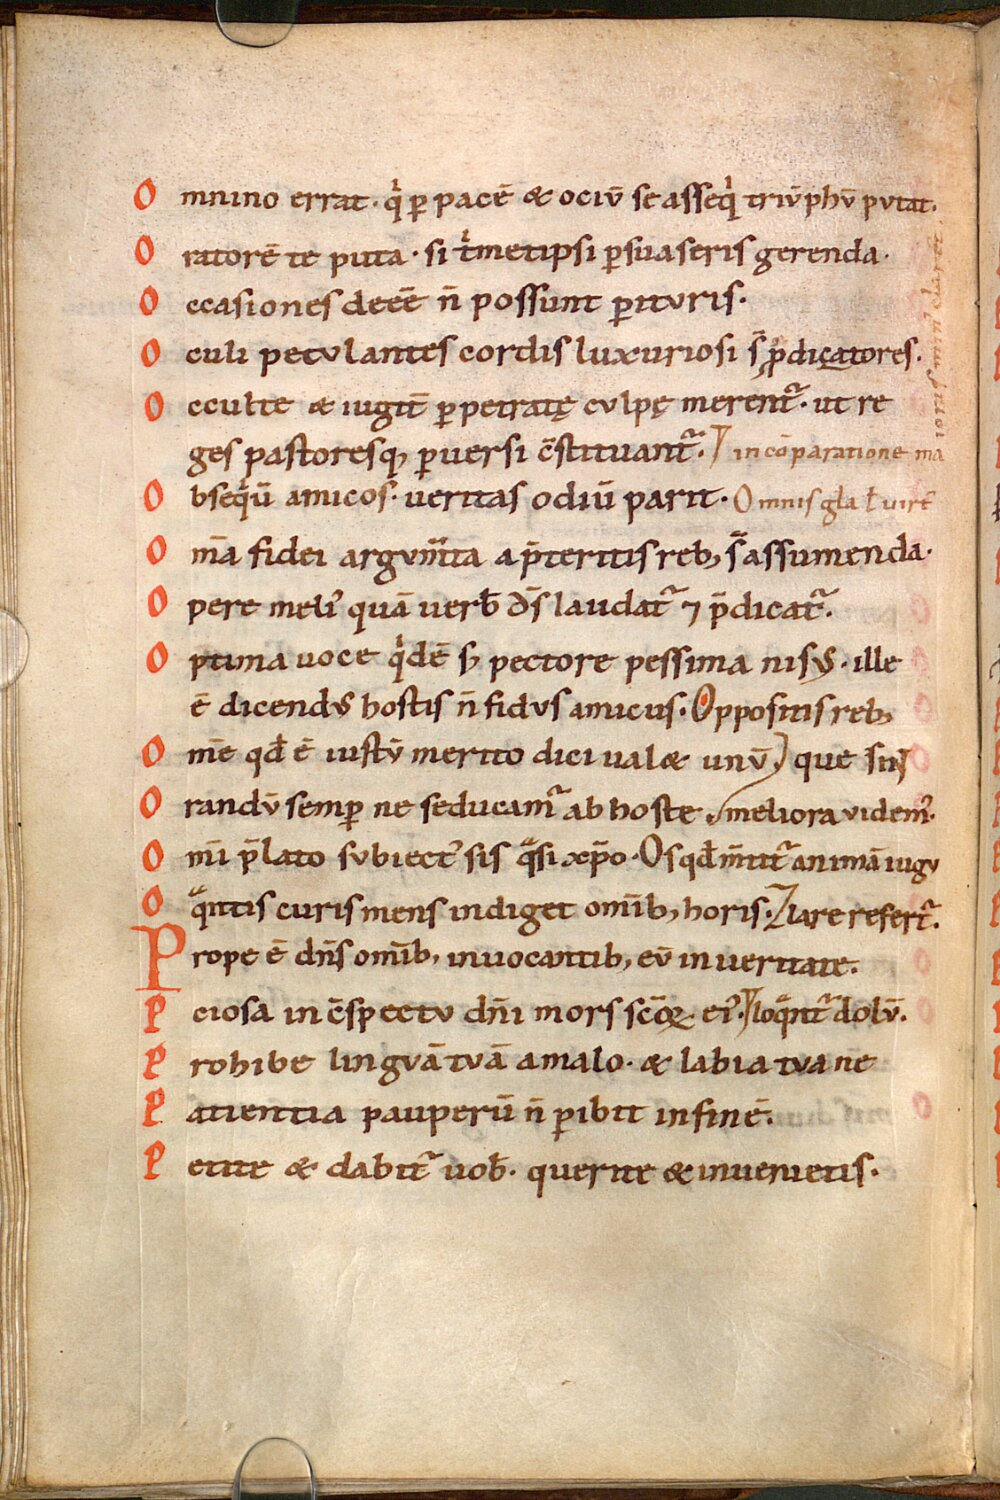 Omnino errat. q̍ ꝑ pacē & ociū se asseq̍ triūphū putat.
Oratorē te puta. si t̍metipsi ꝑsuaseris gerenda.
Occasiones deeē n̄ possunt ꝑituris.
Oculi petulantes cordis luxuriosi s̄ p̄dicatores.
Occulte & iugit̄ ꝑpetratę culpę merent᷑. ut re
ges pastoresq; ꝑuersi c̄stituant᷑. in cōparatione ma
Obseq̍ū amicos. ueritas odiū parit. Omnis gl̄a ł uirt̄
Om̄a fidei argum̄ta a p̄teritis reb; s̄ assumenda.
Opere meli᾽ quā uerƀ d̄s laudat᷑ ⁊ p̄dicat᷑.
Optima uoce q̍dē s; pectore pessima nisus. ille
ē dicendus hostis n̄ fidus amicus. Oppositis reb;
Om̄e qđ ē iustū merito dici ual& unū que sūt
Orandū semꝑ ne seducam᷑ ab hoste meliora uidem᾽.
Om̄i p̄lato subiect᾽ sis q̄si xp̄o. Os qđ m̄tit᷑ animā iugu
Oq̄ntis curis mens indiget omīb; horis. lare refert᷑.
Prope ē dn̄s omīb; inuocantib; eū in ueritate.
Pciosa in c̄spectu dn̄i mors sc̄oꝝ ei᾽. loq̄nt᷑ dolū.
Prohibe linguā tuā a malo. & labia tua ne
Patientia pauperū n̄ ꝑibit in finē.
Petite & dabit᷑ uoƀ. querite & inuenietis.